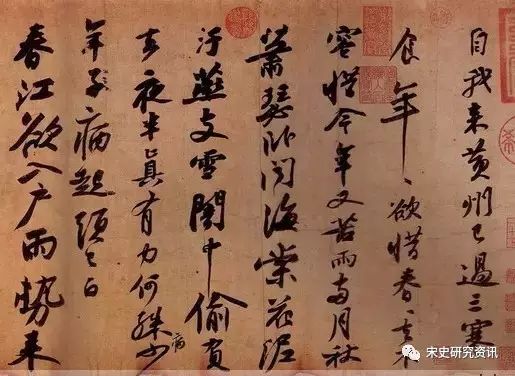 自我來黃州已過三寒
食年〻欲惜春〻去不
容惜今年又苦雨兩月秋
蕭瑟卧聞海棠花泥
汙燕支雪闇中偷負
去夜半真有力何殊少
病
年子病起頭已白
春江欲入户雨勢來
宋史研究资讯